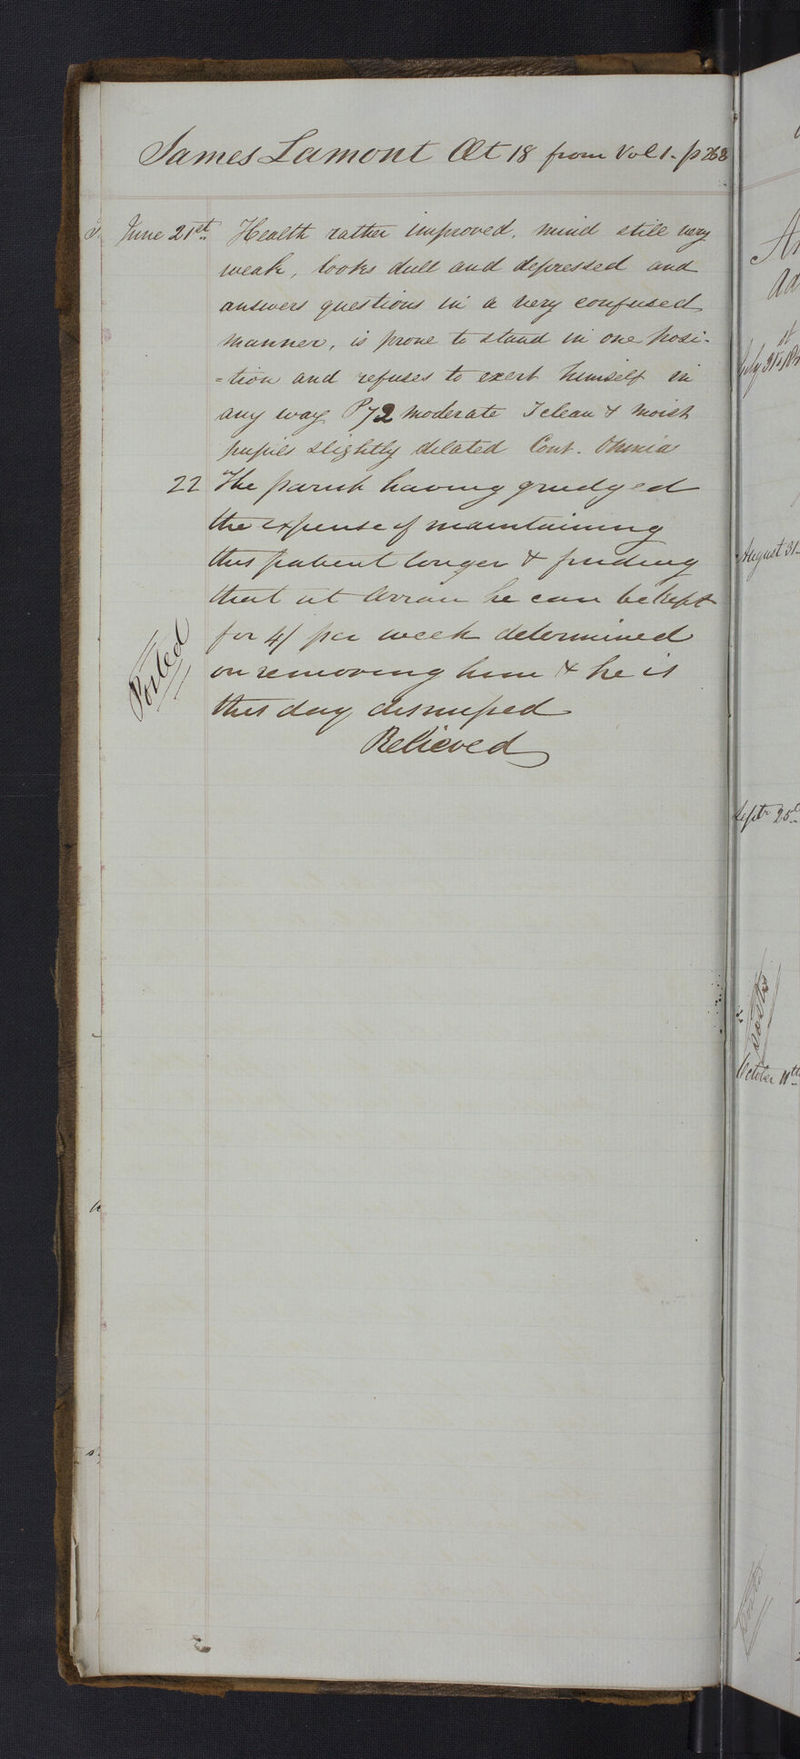 James Lamont Æt 18 from Vol 1. p 268
June 21st Health rather improved, mind still very
weak, looks dull and depressed and
answers questions in a very confused
manner, is prone to stand in one posi-
=tion and refuses to exert himself in
any way P 72 moderate T clean & moist
pupils slightly dilated Cont. Omnia
22 The parish having grudged
the expense of maintaining
this patient longer & finding
that at Arran he can be kept
for 4/ per week determined
on removing him & he is
this day dismissed
Relieved
Posted
July 31st
August 31
Septr 25
October 11th